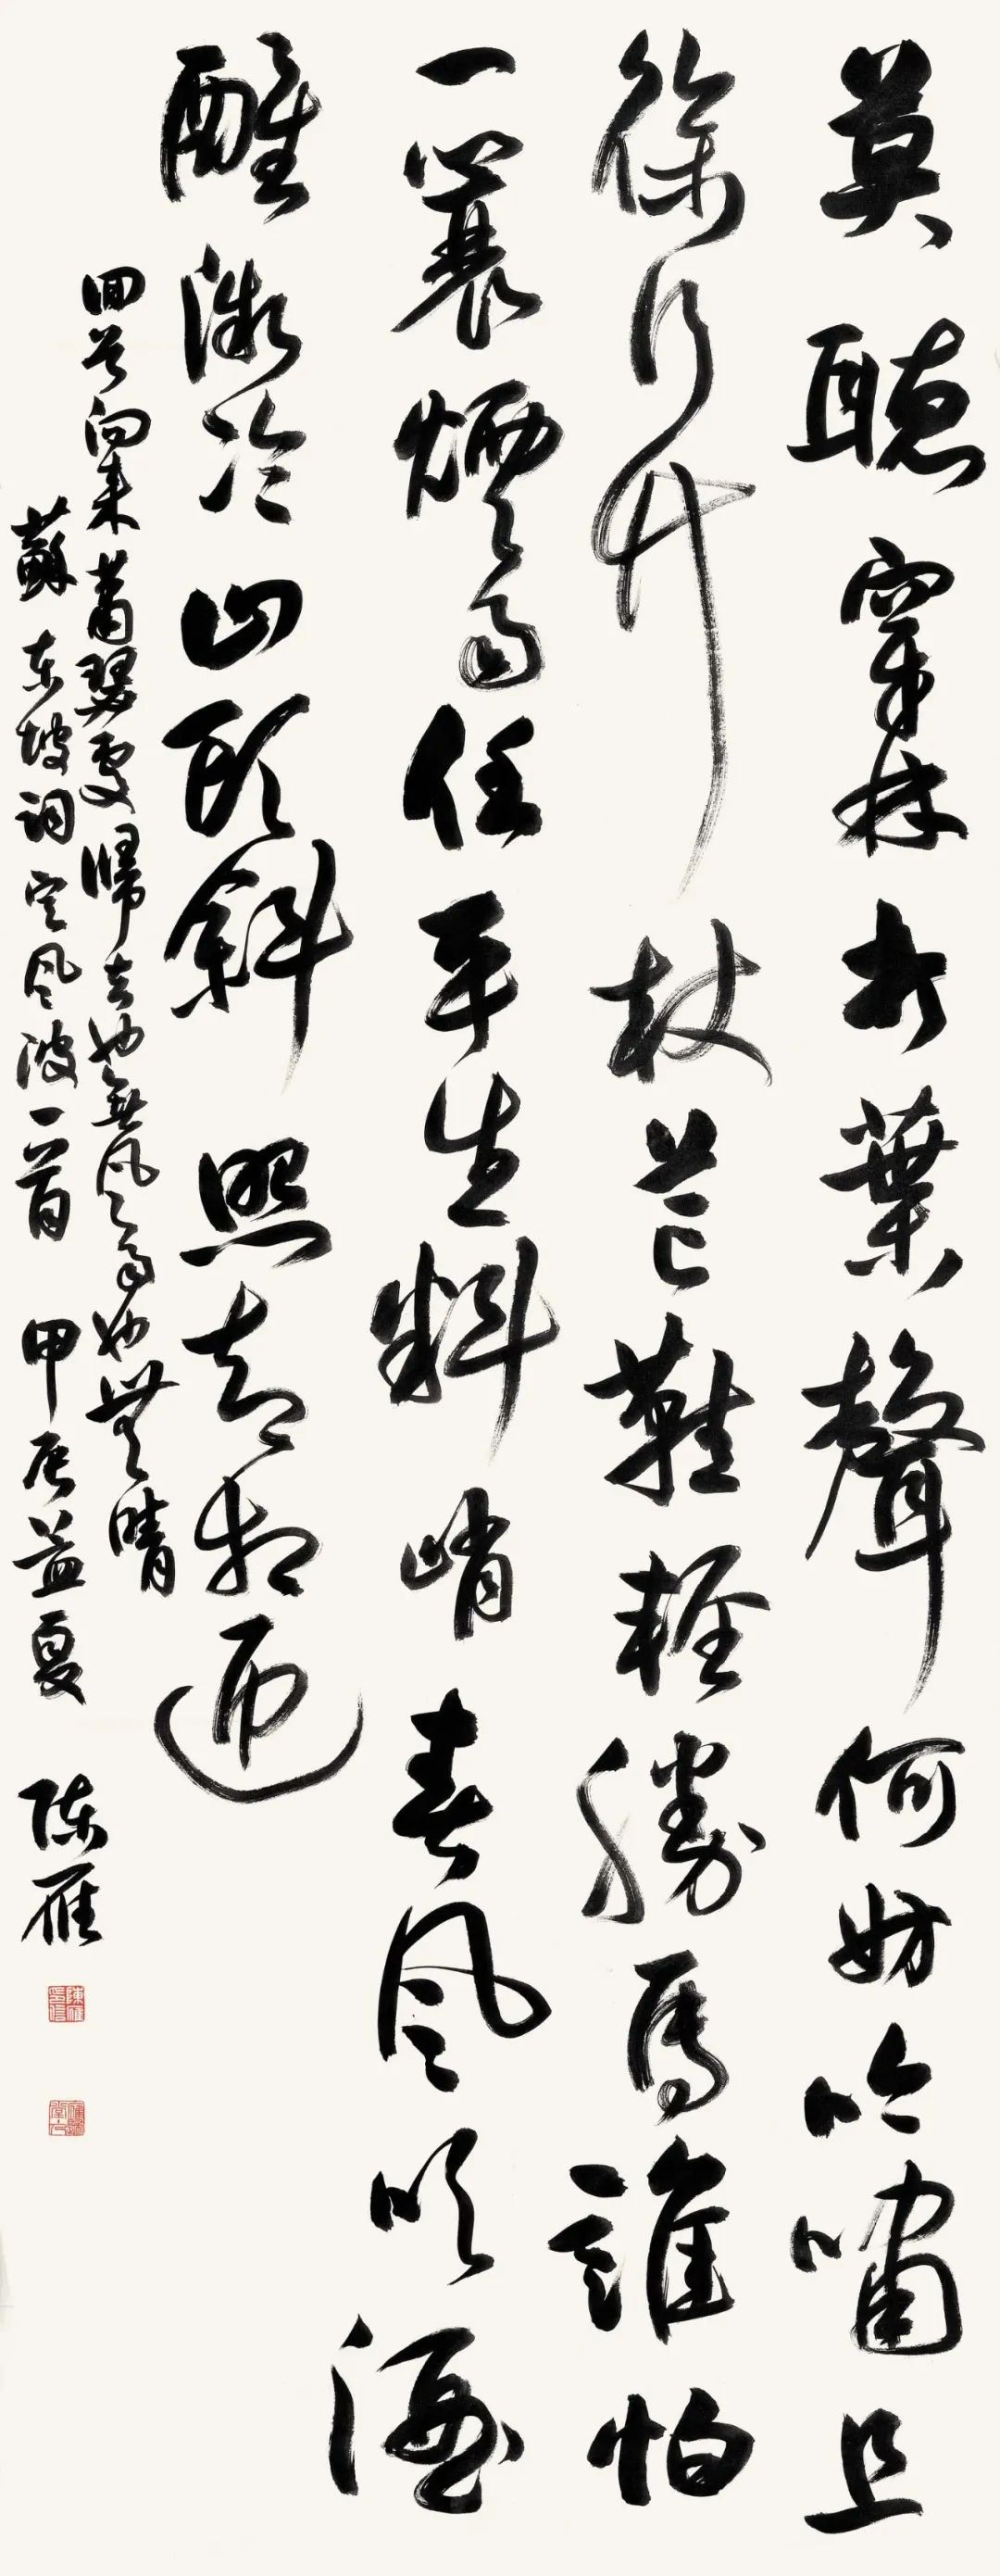 莫聽穿林打葉聲何妨吟嘯且
徐行竹杖芒鞋輕勝馬誰怕
一蓑煙雨任平生料峭春風吹酒
醒微冷山頭斜照却相迎
回首向來蕭瑟處歸去也無風雨也無晴
蘇東坡詞定風波一首 甲辰益夏 陈雁
陳雁印信